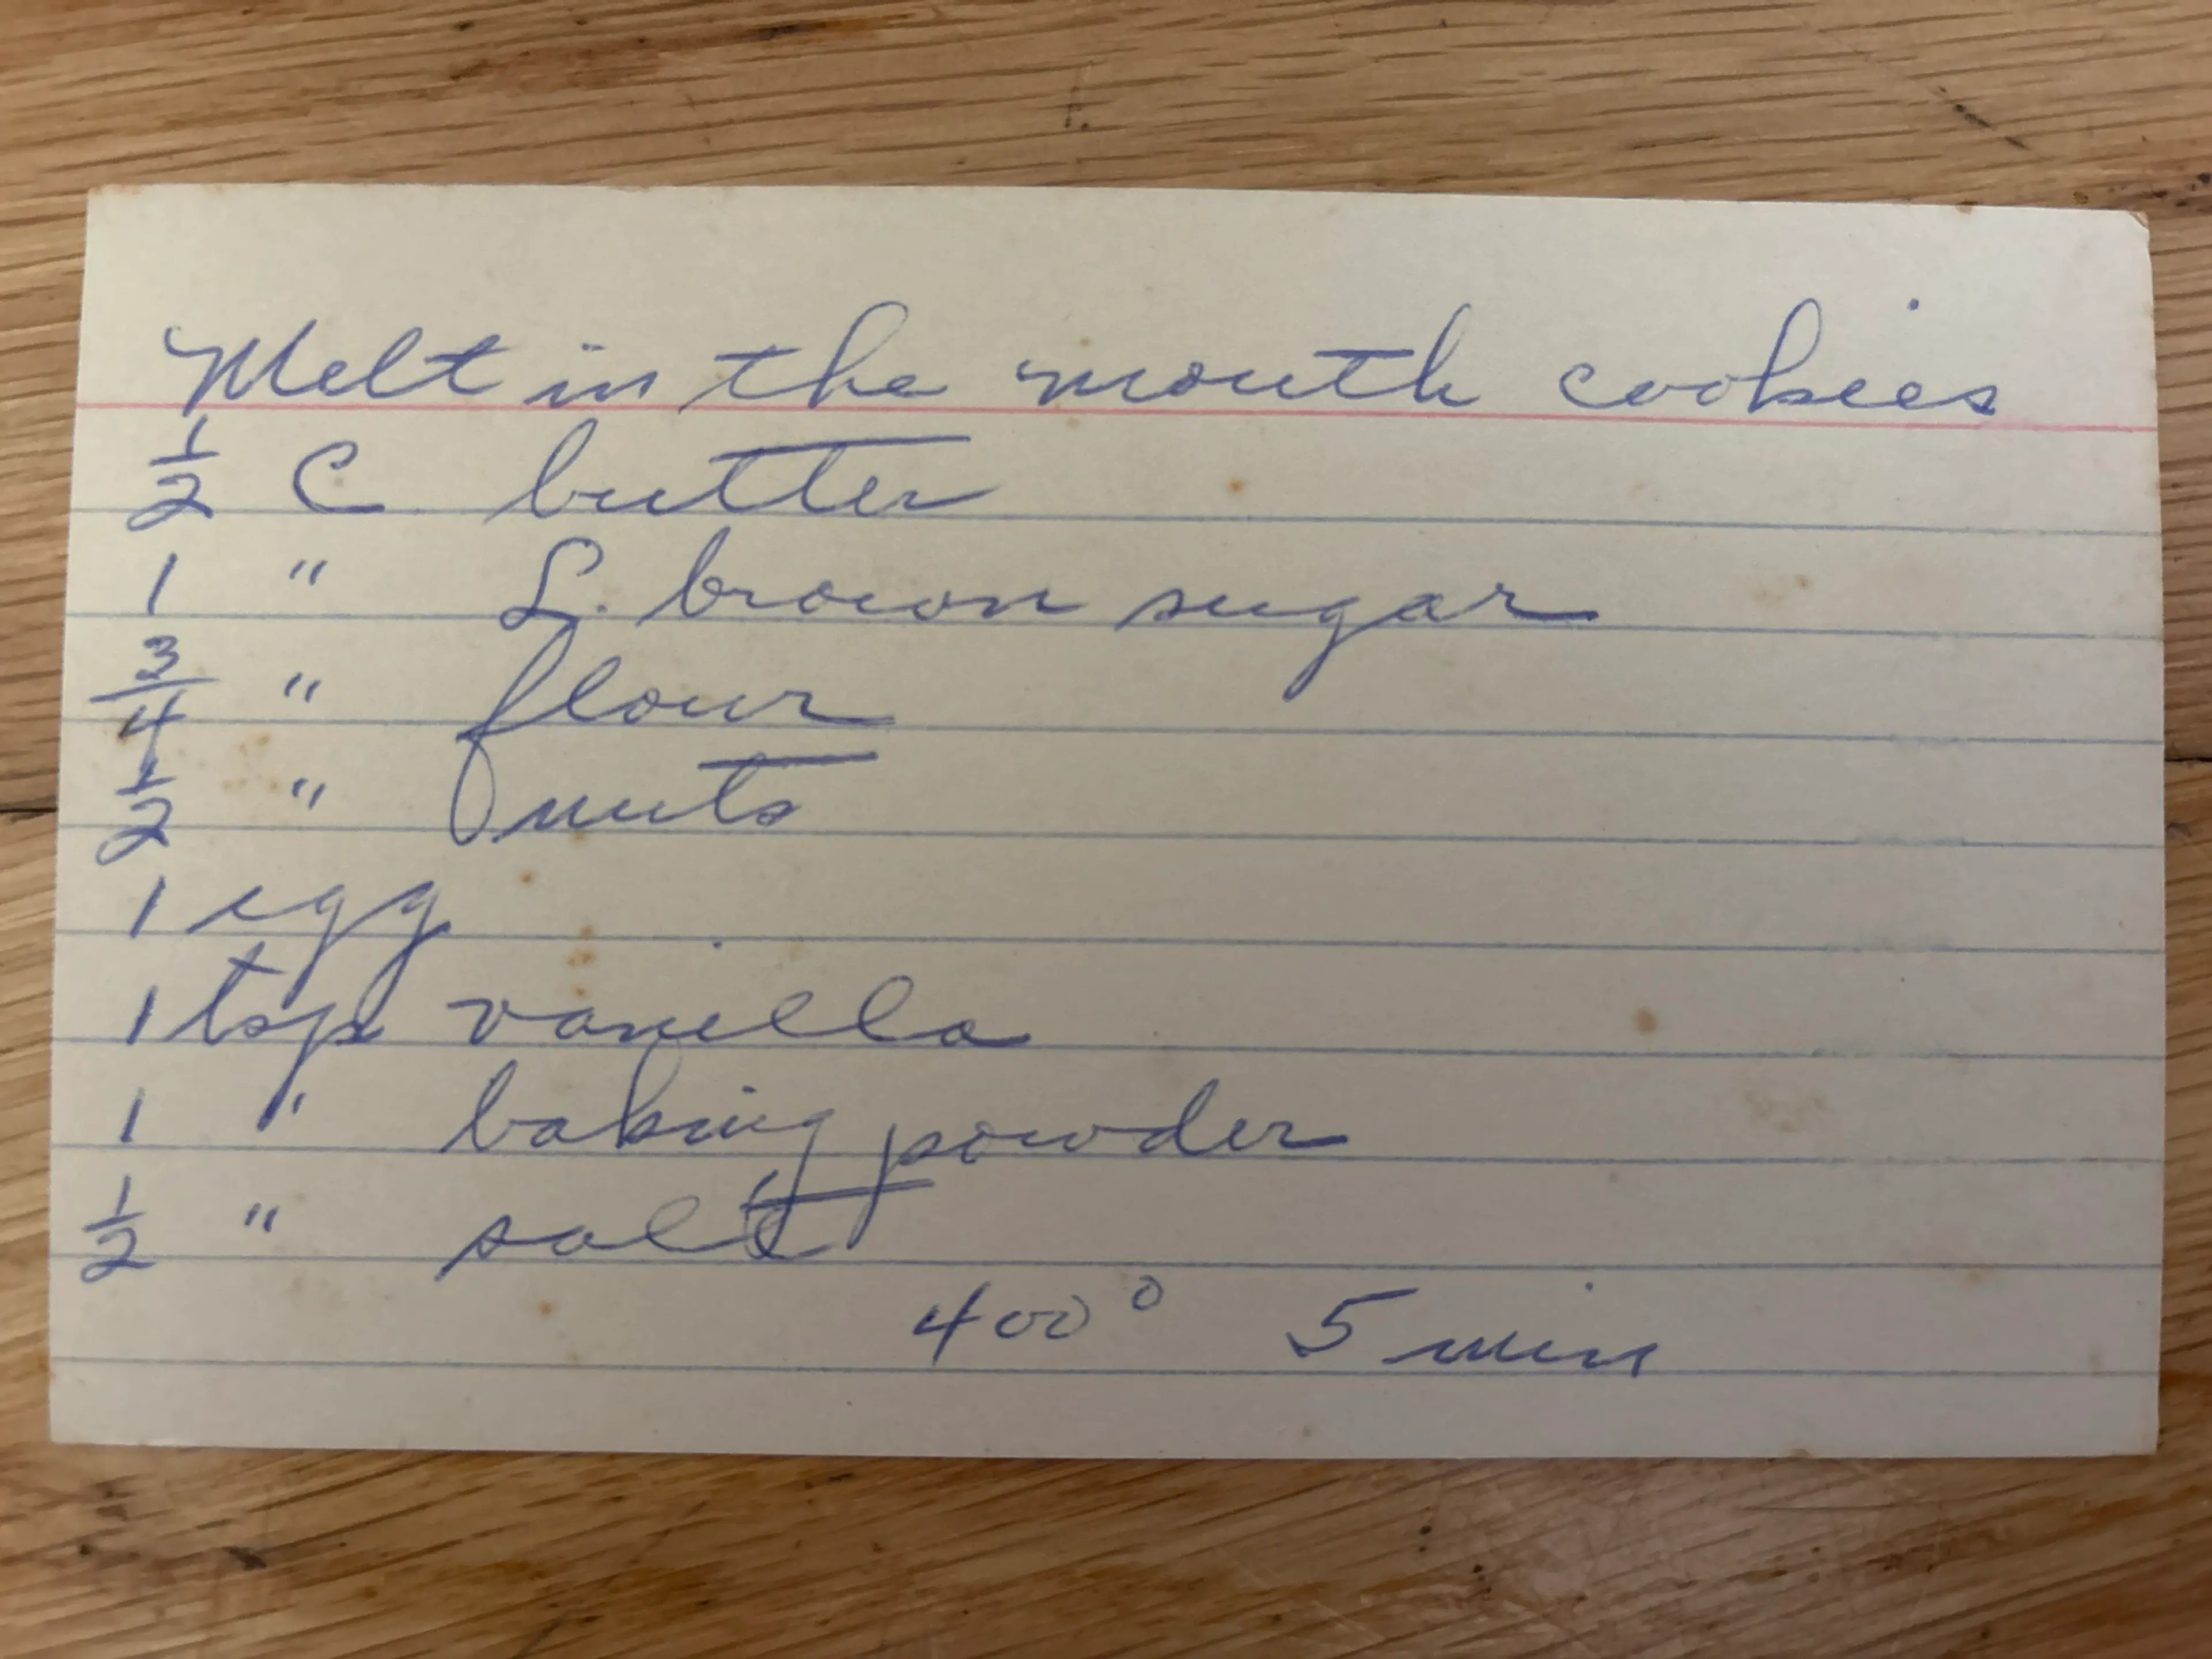 Melt in the mouth cookies
1/2 C butter
1 " L. brown sugar
3/4 " flour
1/2 " nuts
1 egg
1 tsp vanilla
1 " baking powder
1/2 " salt
400° 5 min